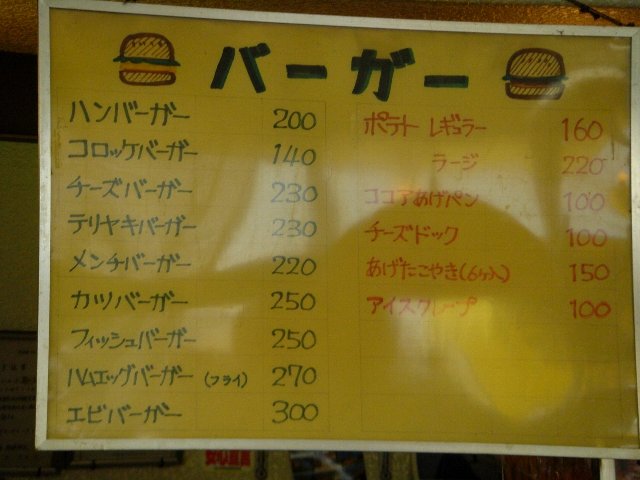 バーガー
ハンバーガー 200
コロッケバーガー 140
チーズバーガー 230
テリヤキバーガー 230
メンチバーガー 220
カツバーガー 250
フィッシュバーガー 250
ハムエッグバーガー (フライ) 270
エビバーガー 300
ポテト レギュラー 160
ラージ 220
ココアあげパン 100
チーズドック 100
あげたこやき(6ヶ入) 150
アイスクレープ 100